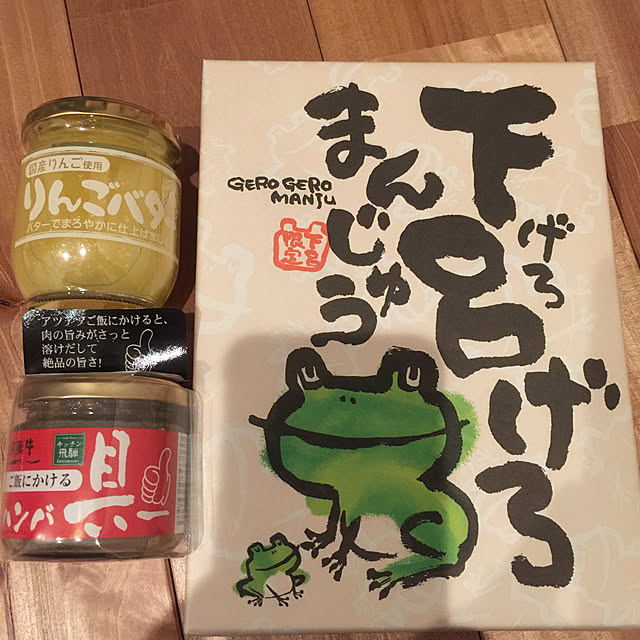 国産りんご使用
りんごバター
バターでまろやかに仕上げました
アツアツご飯にかけると、
肉の旨みがさっと
溶けだして
絶品の旨さ!
キッチン
飛騨
ご飯にかける
ハンバ
具
下呂げろ
げろ
まんじゅう
GERO GERO
MANJU
下呂
限定